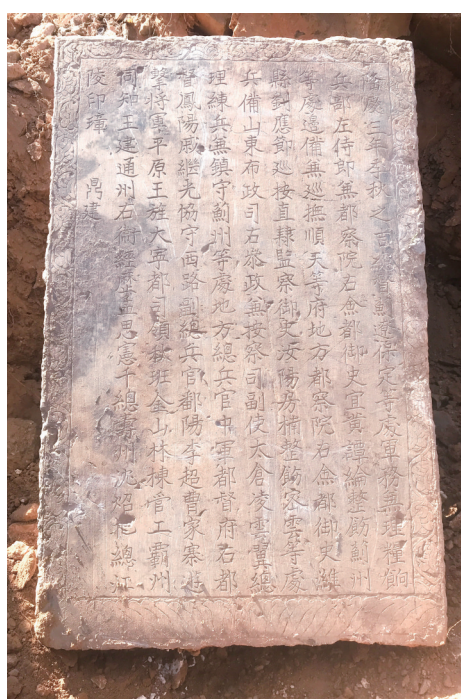 隆慶三年季秋之吉總督薊遼保定等處軍務兼理糧餉
兵部左侍郎兼都察院右僉都御史宜黃譚綸整飭薊州
等處邊備兼巡撫順天等府地方都察院右僉都御史濰
縣劉應節巡按直隸監察御史汝陽房楠整飭密雲等處
兵備山東布政司右參政兼按察司副使太倉凌雲翼總
理練兵兼鎮守薊州等處地方總兵官中軍都督府右都
督鳳陽戚繼光協守西路副總兵官鄱陽李超曹家寨遊
擊將軍平原王旌大寧都司領秋班金山林棟管工霸州
同知王建通州右衛經歷孟思憲千總壽州姚炤把總江
陵印璋 鼎建